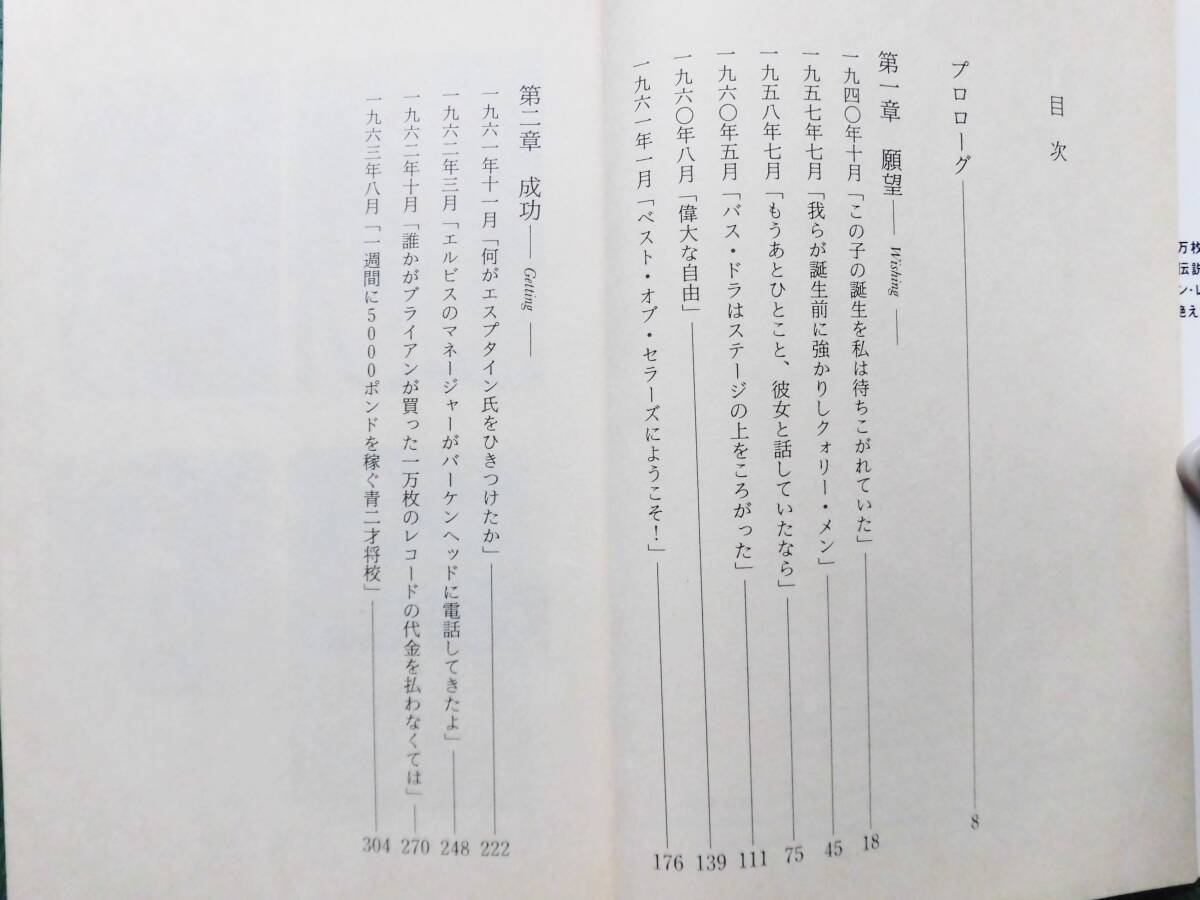 目次
プロローグ――8
第一章 願望―― Wishing ――
一九四〇年十月「この子の誕生を私は待ちこがれていた」――18
一九五七年七月「我らが誕生前に強かりしクォリー・メン」――45
一九五八年七月「もうあとひとこと、彼女と話していたなら」――75
一九六〇年五月「バス・ドラはステージの上をころがった」――111
一九六〇年八月「偉大な自由」――139
一九六一年一月「ベスト・オブ・セラーズにようこそ！」――176
第二章 成功―― Getting ――
一九六一年十一月「何がエスプタイン氏をひきつけたか」――222
一九六二年三月「エルビスのマネージャーがバーケンヘッドに電話してきたよ」――248
一九六二年十月「誰かがブライアンが買った一万枚のレコードの代金を払わなくては」――270
一九六三年八月「一週間に5000ポンドを稼ぐ青二才将校」――304
万枚
伝説
絶え